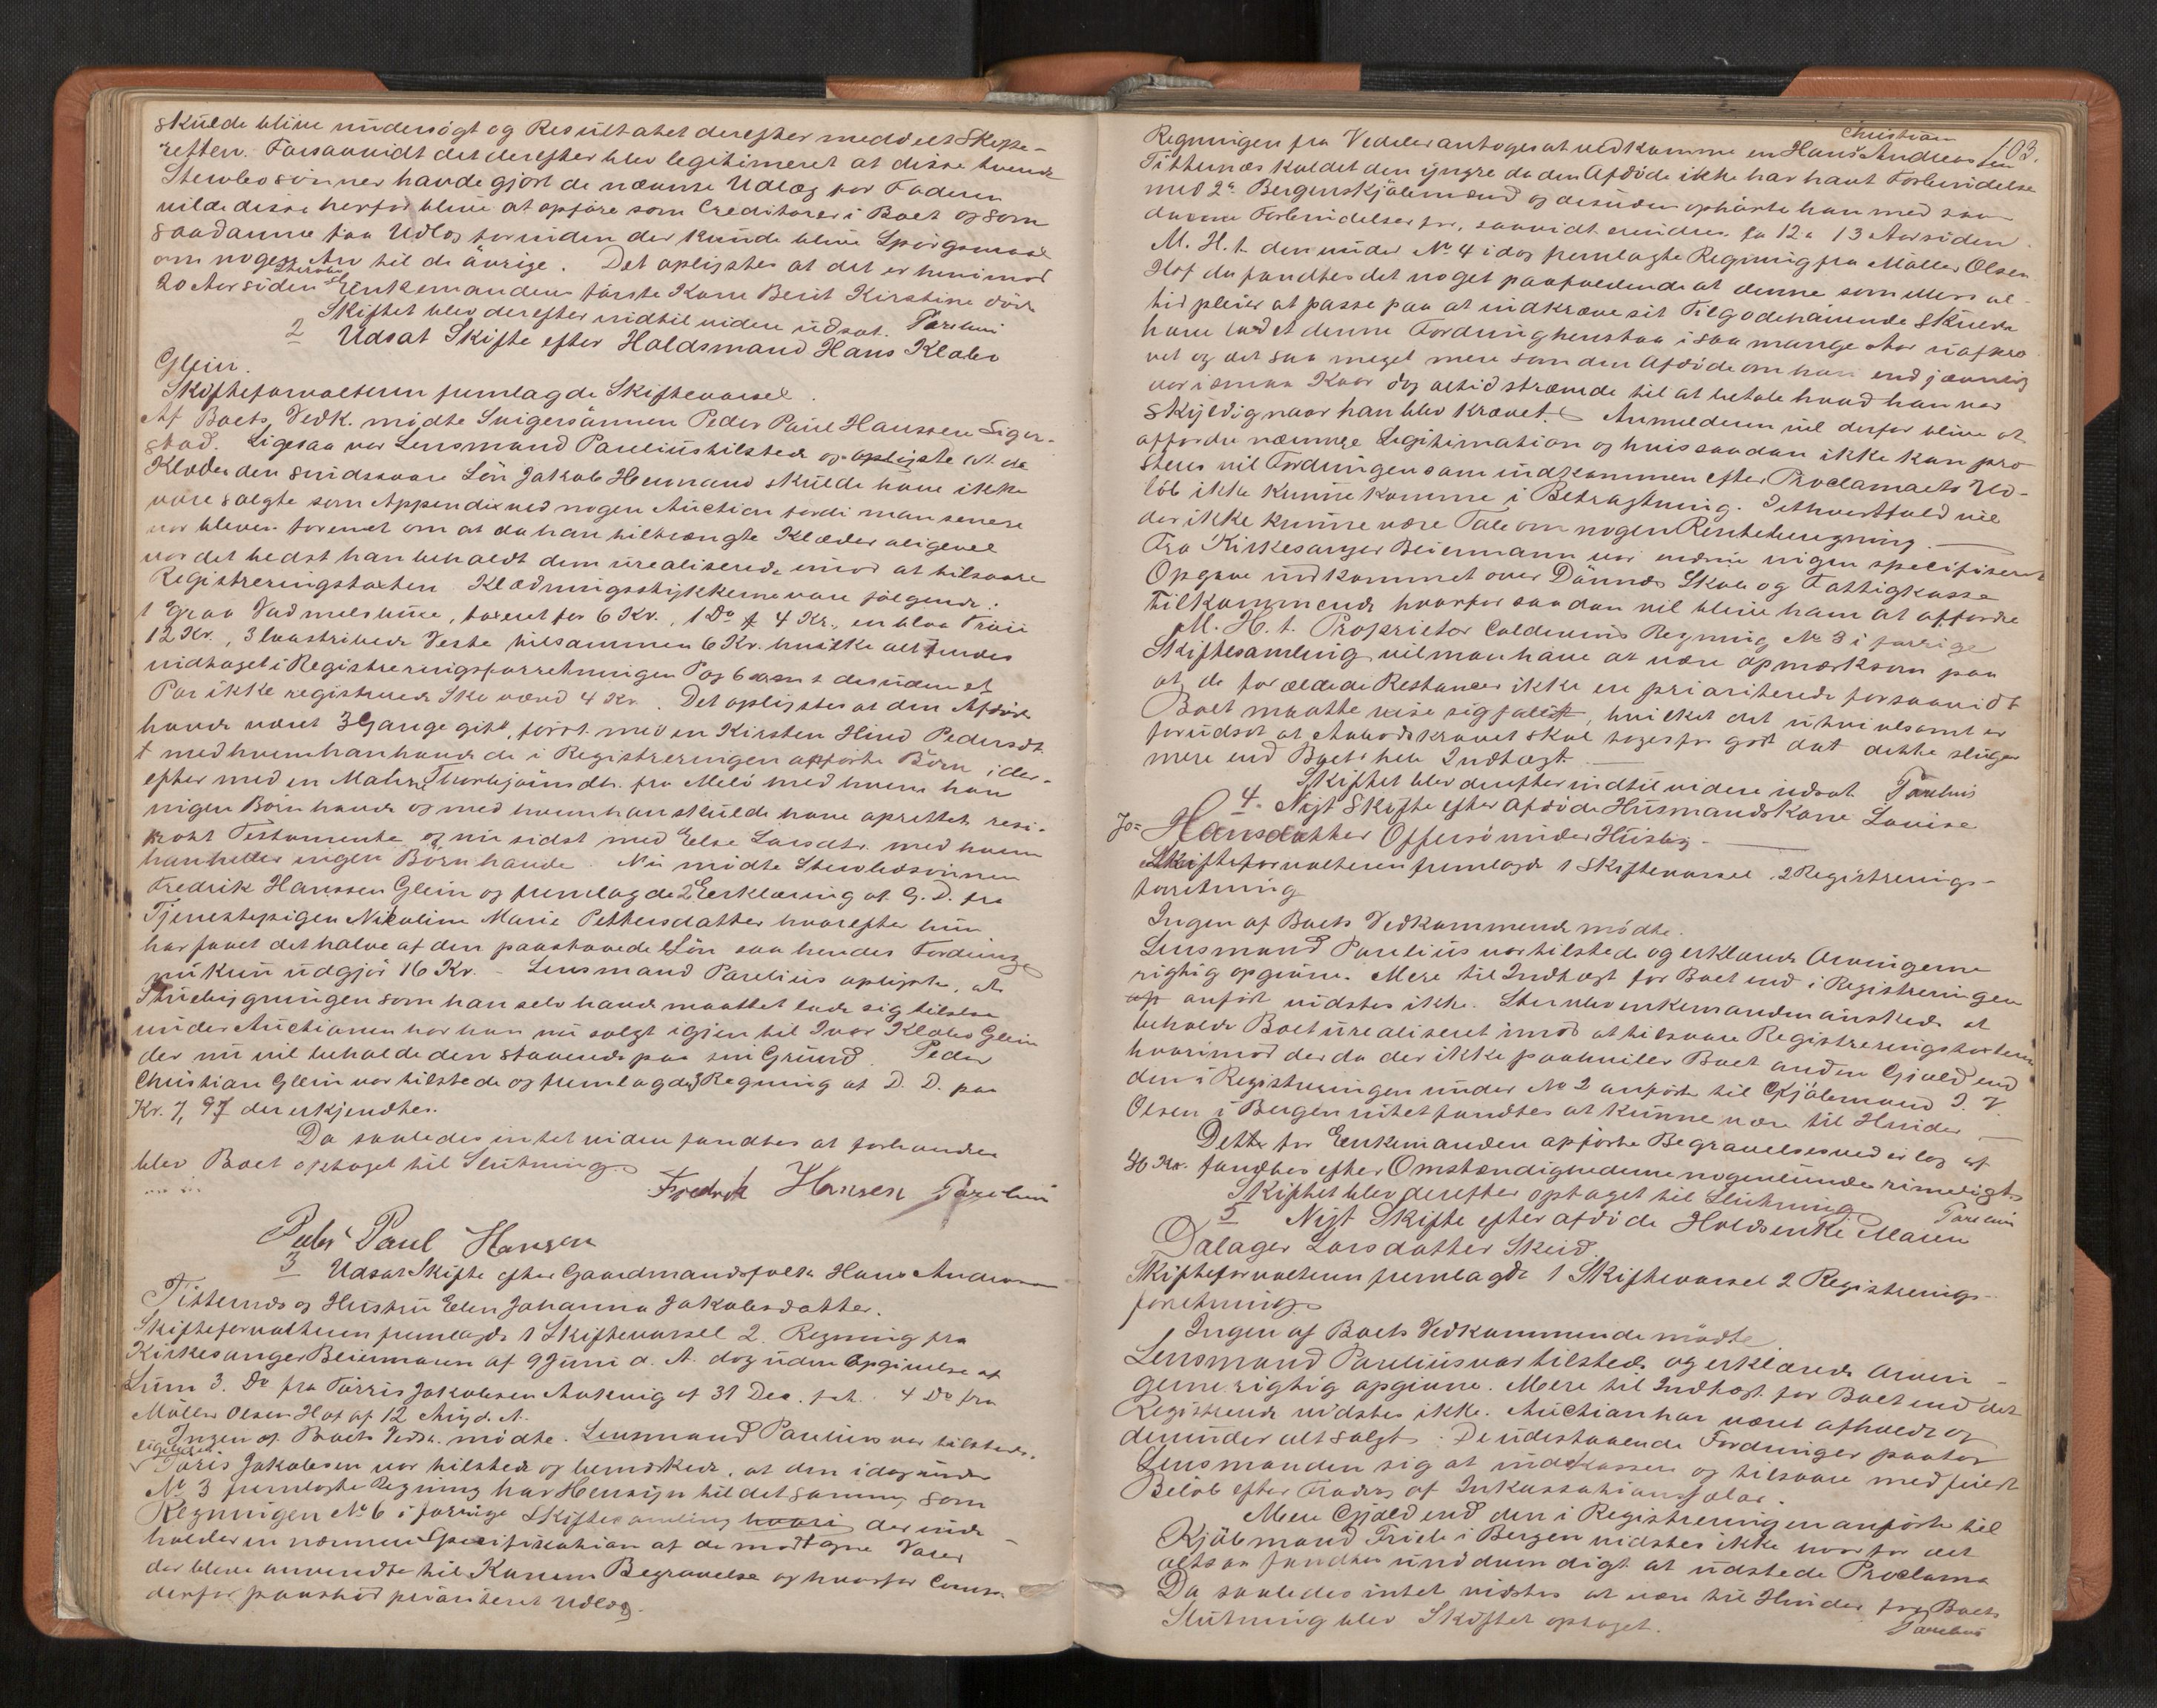 skulde blive undersøgt og Resultatet derefter meddelt Skifte-
retten. Forsaavidt det derefter blev legitimeret at disse tvende
Sterbosønner havde gjort de nævnte Udlæg for Faderen
vilde disse herfor blive at opføre som Creditorer i Boet og som
saadanne faa Udlæg forinden der kunde blive Spørgsmaal
om nogen Arv til de øvrige. Det oplystes at det er henimod
20 Aar siden Sterbo Enkemandens første Kone Berit Kirstine døde
Skiftet blev derefter indtil videre udsat. Parelius
2 Udsat Skifte efter Holdsmand Hans Klabo
Glein.
Skifteforvalteren fremlagde Skiftevarsel.
Af Boets Vedk. mødte Svigersønnen Peder Paul Hanssen Siger-
stad. Ligesaa var Lensmand Parelius tilstede og oplyste at de
Klæder den sindssvage Søn Jakob Hermand skulde have ikke
vare solgte som Appendix ved nogen Auction fordi man senere
var bleven forenet om at da han tiltrængte Klæder aligevel
var det bedst han beholdt dem urealiserede imod at tilsvare
Registreringstaxten. Klædningsstykkerne vare følgende:
1 Graa Vadmelsbuxe, taxeret for 6 Kr., 1 Do f 4 Kr., en blaa Trøie
12 Kr., 3 baastribede Veste tilsammen 6 Kr. hvilke alt findes
indtaget i Registreringsforretningen Pag 6 samt desuden et
Par ikke registrerede Sko værd 4 Kr. Det oplystes at den Afdøde
havde været 3 Gange gift, først med en Kirsten Hind Pedersdt.
+ med hvem han havde de i Registreringen opførte Børn, ider-
efter med en Maren Thorbjørnsdtr. fra Melø med hvem han
ingen Børn havde og med hvem han skulde have oprettet resi-
prokt Testamente og nu sidst med Else Larsdtr. med hvem
han heller ingen Børn havde. Nu mødte Sterbosønnen
Fredrik Hanssen Glein og fremlagde 2 Erklæring af G. D. fra
Tjenestepigen Nikoline Marie Pettersdatter hvorefter hun
har faaet det halve af den paastaaede Løn saa hendes Fordring
nu kun udgjør 16 Kr. - Lensmand Parelius oplyste, at
Stuebygningen som han selv havde maattet lade sig tilslaa
under Auctionen har han nu solgt igjen til Ivar Klabo Glein
der nu vil beholde den staaende paa sin Grund. Peder
Christian Glein var tilstede og fremlagde 3 Regning af D. D. paa
Kr. 7,97 der erkjendtes.
Da saaledes intet videre fandtes at forhandle
blev Boet optaget til Slutning.
Fredrik Hansen Parelius
Peder Paul Hansen
3 Udsat Skifte efter Gaardmandsfolk Hans Andersen
Titternes og Hustru Elen Johanna Jakobsdatter.
Skifteforvalteren fremlagde 1 Skiftevarsel 2. Regning fra
Kirkesanger Beiermann af 9 Juni d. A. dog uden Opgivelse af
Sum 3. Do fra Torris Jakobsen Aakvig af 31 Dec. f. A. 4 Do fra
Møller Olsen Hof af 12 Aug d. A.
Ingen af Boets Vedk. mødte. Lensmand Parelius var tilstede.
ligeledes
Toris Jakobsen var tilstede og bemærkede, at den idag under
No 3 fremlagte Regning har Hensyn til det samme som
Regningen No 6 i forrige Skiftesamling hvori der inde-
holder en nærmere Specifikation af de modtagne Varer
der bleve anvendte til Konens Begravelse og hvorfor Comp.
derfor paastod prioriteret Udlæg.
103.
Christian
Regningen fra Vedeler antoges at vedkomme en Hans Andreassen
Titternæs kaldet den yngre da den Afdøde ikke har havt Forbindelse
med 2de Bergenskjøbmænd og desuden ophørte han med saa-
danne Forbindelser for, saavidt erindres fra 12 a 13 Aar siden.
M. H. t. den under No 4 idag fremlagte Regning fra Møller Olsen
Hof da fandtes det noget paafaldende at denne som ellers al-
tid pleier at passe paa at indkræve sit Tilgodehavende skulde
have ladet denne Fordring henstaa i saa mange Aar uafkræ-
vet og det saa meget mere som den Afdøde om han end jævnlig
var i smaa Kaar dog altid strævede til at betale hvad han var
skyldig naar han blev krævet. Anmelderen vil derfor blive at
affordre nærmere Legitimation og hvis saadan ikke kan præ-
steres vil Fordringen som indkommen efter Proclamaets Ud-
løb ikke kunne komme i Betragtning. I ethvert fald vil
der ikke kunne være Tale om nogen Renteberegning.
Fra Kirkesanger Beiermann var endnu ingen specifiseret
Opgave indkommet over Dønnæs Skole og Fattigkasse
tilkommende hvorfor saadan vil blive ham at affordre
M. H. t. Proprietær Coldevins Regning No 3 i forrige
Skiftesamling vil man have at være opmærksom paa
at de forældede Restancer ikke ere prioriterede forsaavidt
Boet maatte vise sig fallit, hvilket det utvivlsomt er
forudsat at Aabodskravet skal tages for godt dat dette sluger
mere end Boets hele Indtægt.
Skiftet blev derefter indtil videre udsat. Parelius
4. Nyt Skifte efter afdøde Husmandskone Lovise
Jo=
Hansdatter Offersø under Husby.
Skifteforvalteren fremlagde 1 Skiftevarsel, 2 Registrerings-
forretning
Ingen af Boets Vedkommende mødte.
Lensmand Parelius var tilstede og erklærede Arvingerne
rigtig opgivne. Mere til Indtægt for Boet end i Registreringen
op anført vidstes ikke. Sterboenkemanden ønskede at
beholde Boet urealiseret imod at tilsvare Registreringstaxten
hvorimod der da der ikke paahviler Boet anden Gjæld end
den i Registreringen under No 2 anførte til Kjøbmand J. V.
Olsen i Bergen intet fandtes at kunne være til Hinder
Dette for Enkemanden opførte Begravelsesvederlag af
36 Kr. fandtes efter Omstændighederne nogenlunde rimeligt.
Skiftet blev derefter optaget til Slutning.
Parelius
5 Nyt Skifte efter afdøde Holdsenke Maren
Dalager Larsdatter Skeid.
Skifteforvalteren fremlagde 1 Skiftevarsel 2 Registrerings-
forretning.
Ingen af Boets Vedkommende mødte.
Lensmand Parelius var tilstede og erklærede Arvin-
gerne rigtig opgivne. Mere til Indtægt for Boet end det
Registrerede vidstes ikke. Auction har været afholdt og
derunder alt solgt. De udestaaende Fordringer paatog
Lensmanden sig at indkassere og tilsvare med fuldt
Beløb efter Fradrag af Inkassationssalær.
Mere Gjæld end den i Registreringen anførte til
Kjøbmand Friele i Bergen vidstes ikke hvorfor det
altsaa fandtes unødvendigt at udstede Proclama
Da saaledes intet vidstes at være til Hinder for Boets
Slutning blev Skiftet optaget.
Parelius